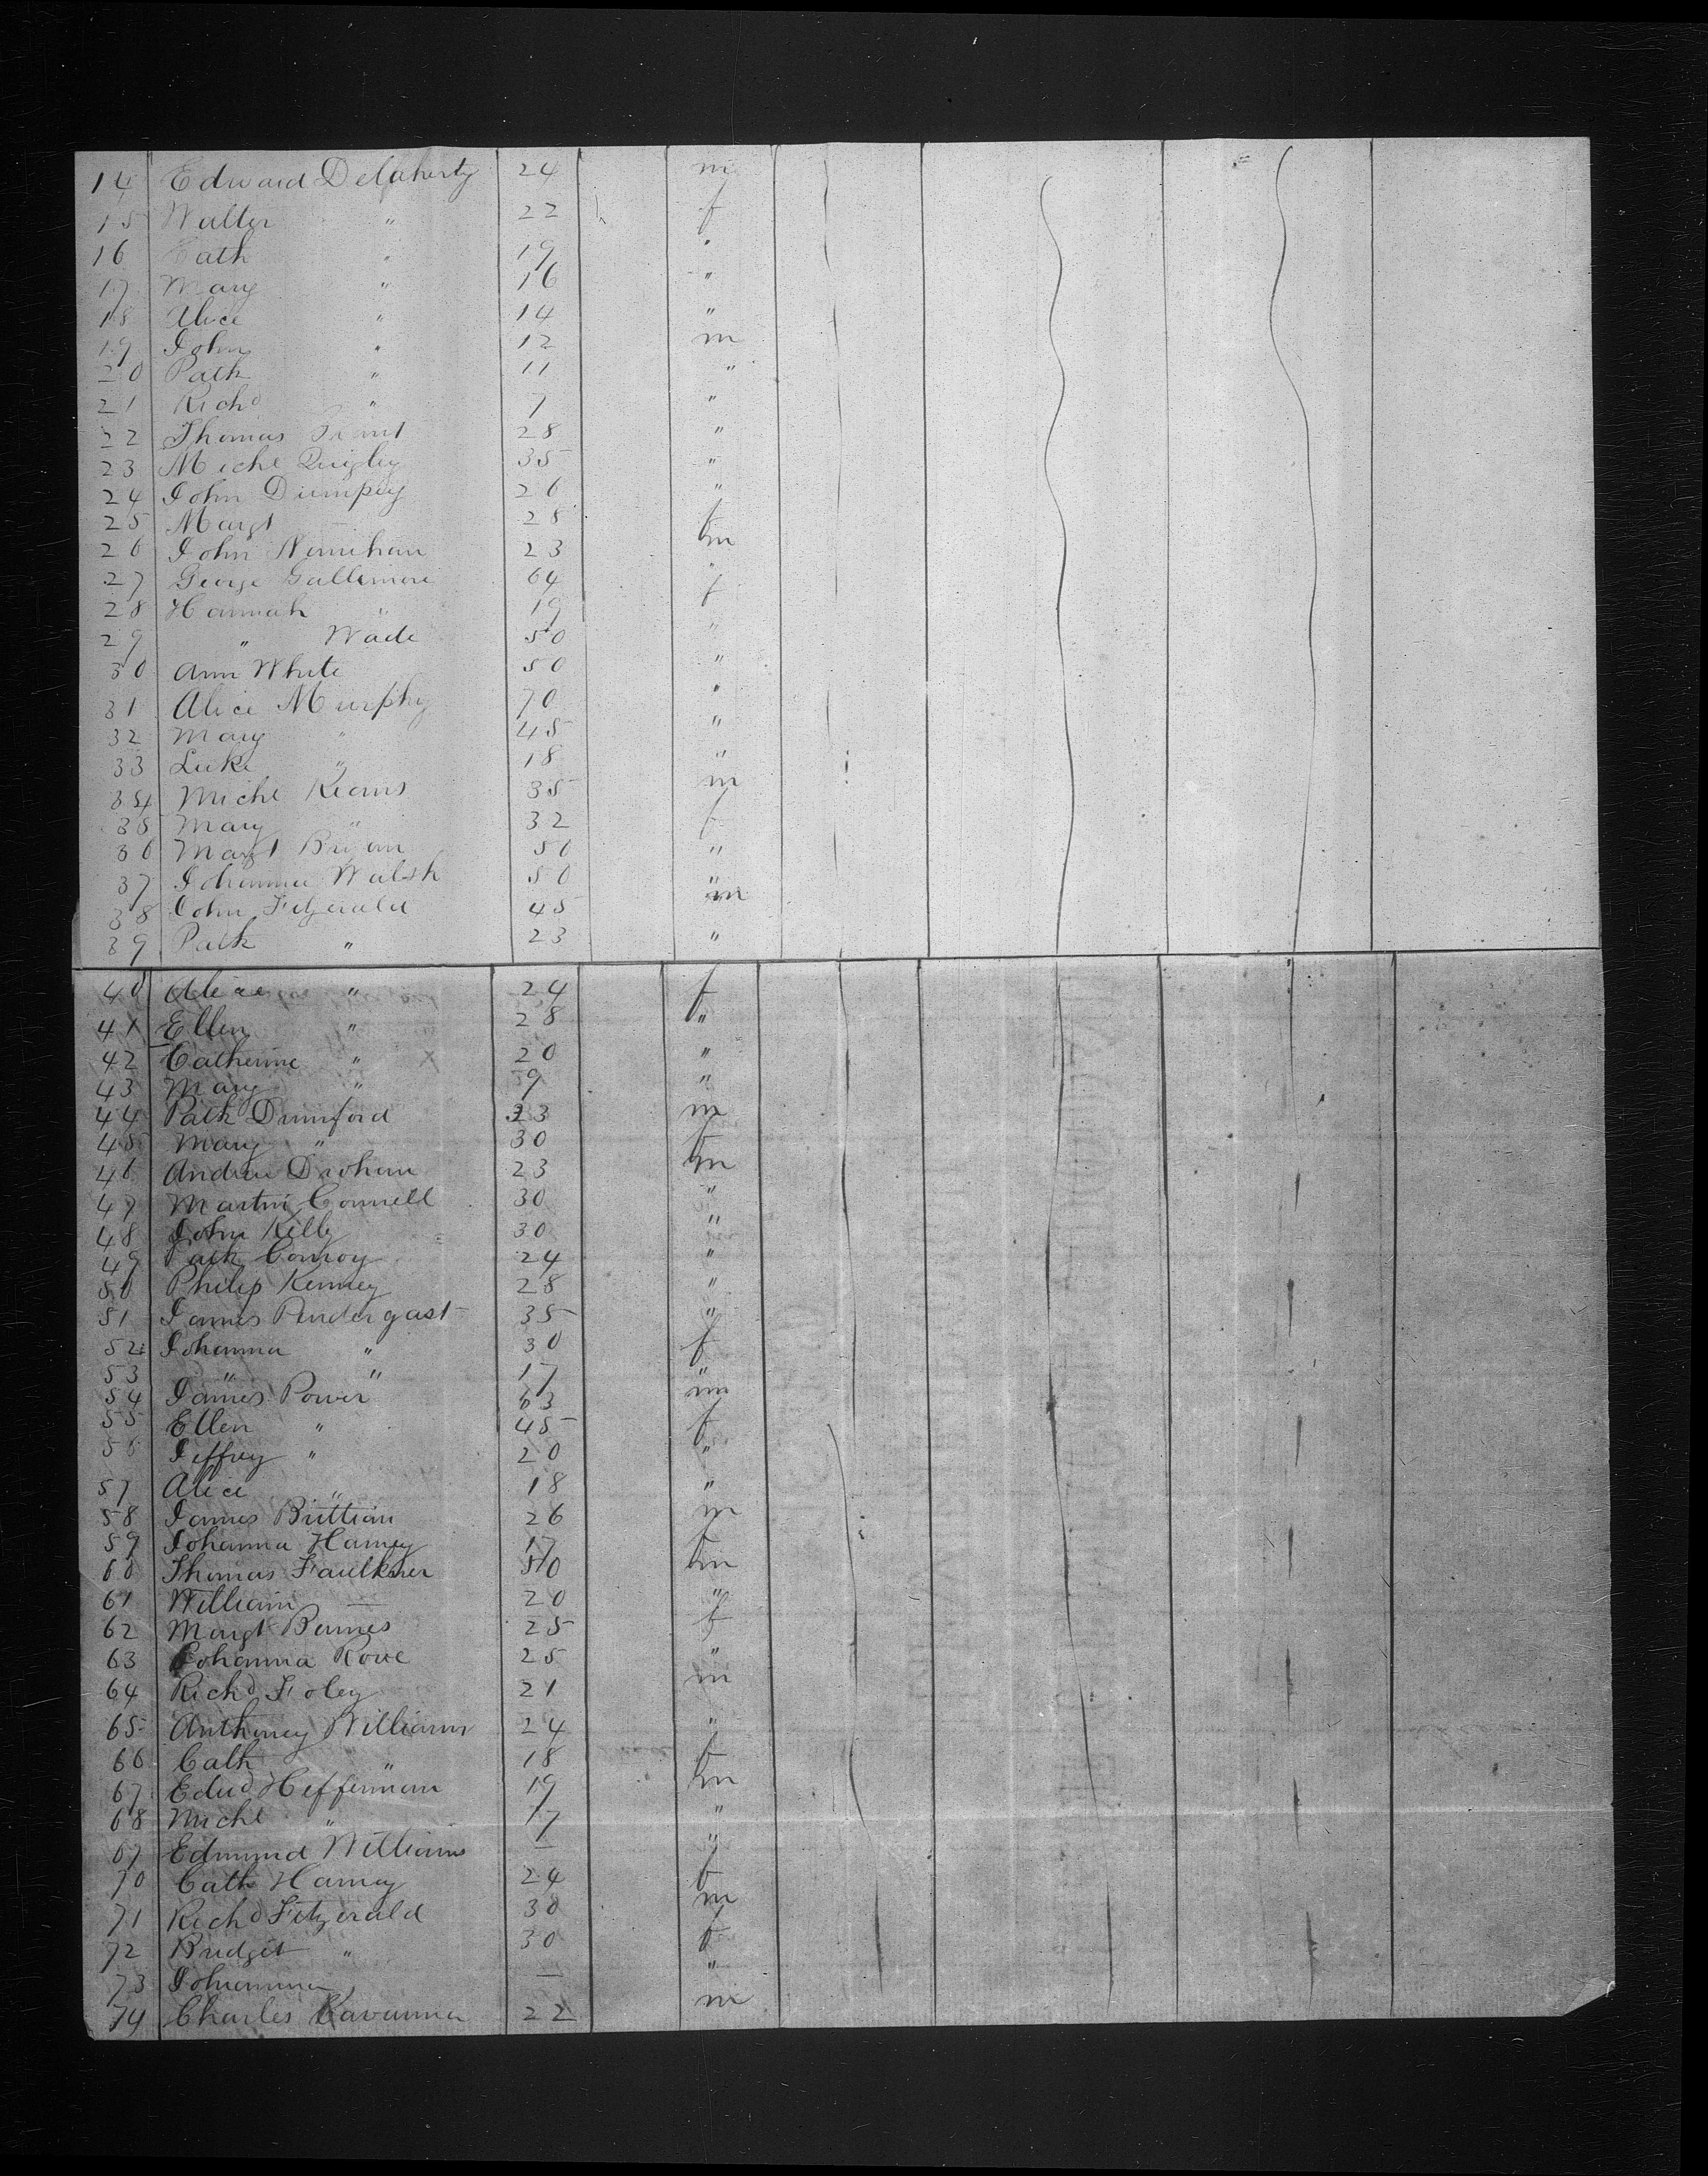 14 Edward Delaherty 24 m
15 Walter " 22 f
16 Cath " 19 "
17 Mary " 16 "
18 Alice " 14 "
19 John " 12 m
20 Patk " 11 "
21 Richd " 7 "
22 Thomas Grant 28 "
23 Michl Quigley 35 "
24 John Dumpey 26 "
25 Margt — 28 f
26 John Nernihan 23 m
27 George Gallimore 64 "
28 Hannah " 19 f
29 " Wade 50 "
30 Ann White 50 "
31 Alice Murphy 70 "
32 Mary " 45 "
33 Luke " 18 "
34 Michl Kearns 35 m
35 Mary " 32 f
36 Margt Bryan 50 "
37 Johanna Walsh 50 "
38 John Fitzgerald 45 m
39 Patk " 23 "
40 Alice " 24 f
41 Ellen " 28 "
42 Catherine " 20 "
43 Mary " 9 "
44 Patk Dunford 33 m
45 Mary " 30 f
46 Andrew Drohan 23 m
47 Martin Connell 30 "
48 John Kelly 30 "
49 Patk Conroy 24 "
50 Philip Kenney 28 "
51 James Pendergast 35 "
52 Johanna " 30 f
53 " " 17 "
54 James Power 63 m
55 Ellen " 45 f
56 Jeffrey " 20 "
57 Alice " 18 "
58 James Brittian 26 m
59 Johanna Haney 17 f
60 Thomas Faulkner 50 m
61 William — 20 "
62 Margt Barnes 25 f
63 Johanna Rowe 25 "
64 Richd Foley 21 m
65 Anthoney Williams 24 "
66 Cath " 18 f
67 Edwd Heffernan 19 m
68 Michl " 17 "
69 Edmund Williams — "
70 Cath Haney 24 f
71 Richd Fitzgerald 30 m
72 Bridget " 30 f
73 Johanna — "
74 Charles Kavanna 22 m